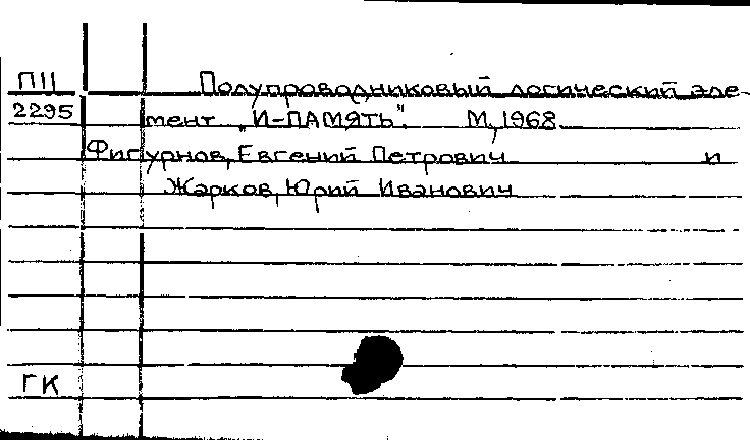 П11 Полупроводниковый логический эле-
2295 мент „И-ПАМЯТЬ". М, 1968
Фигурнов, Евгений Петрович и
Жарков, Юрий Иванович
ГК